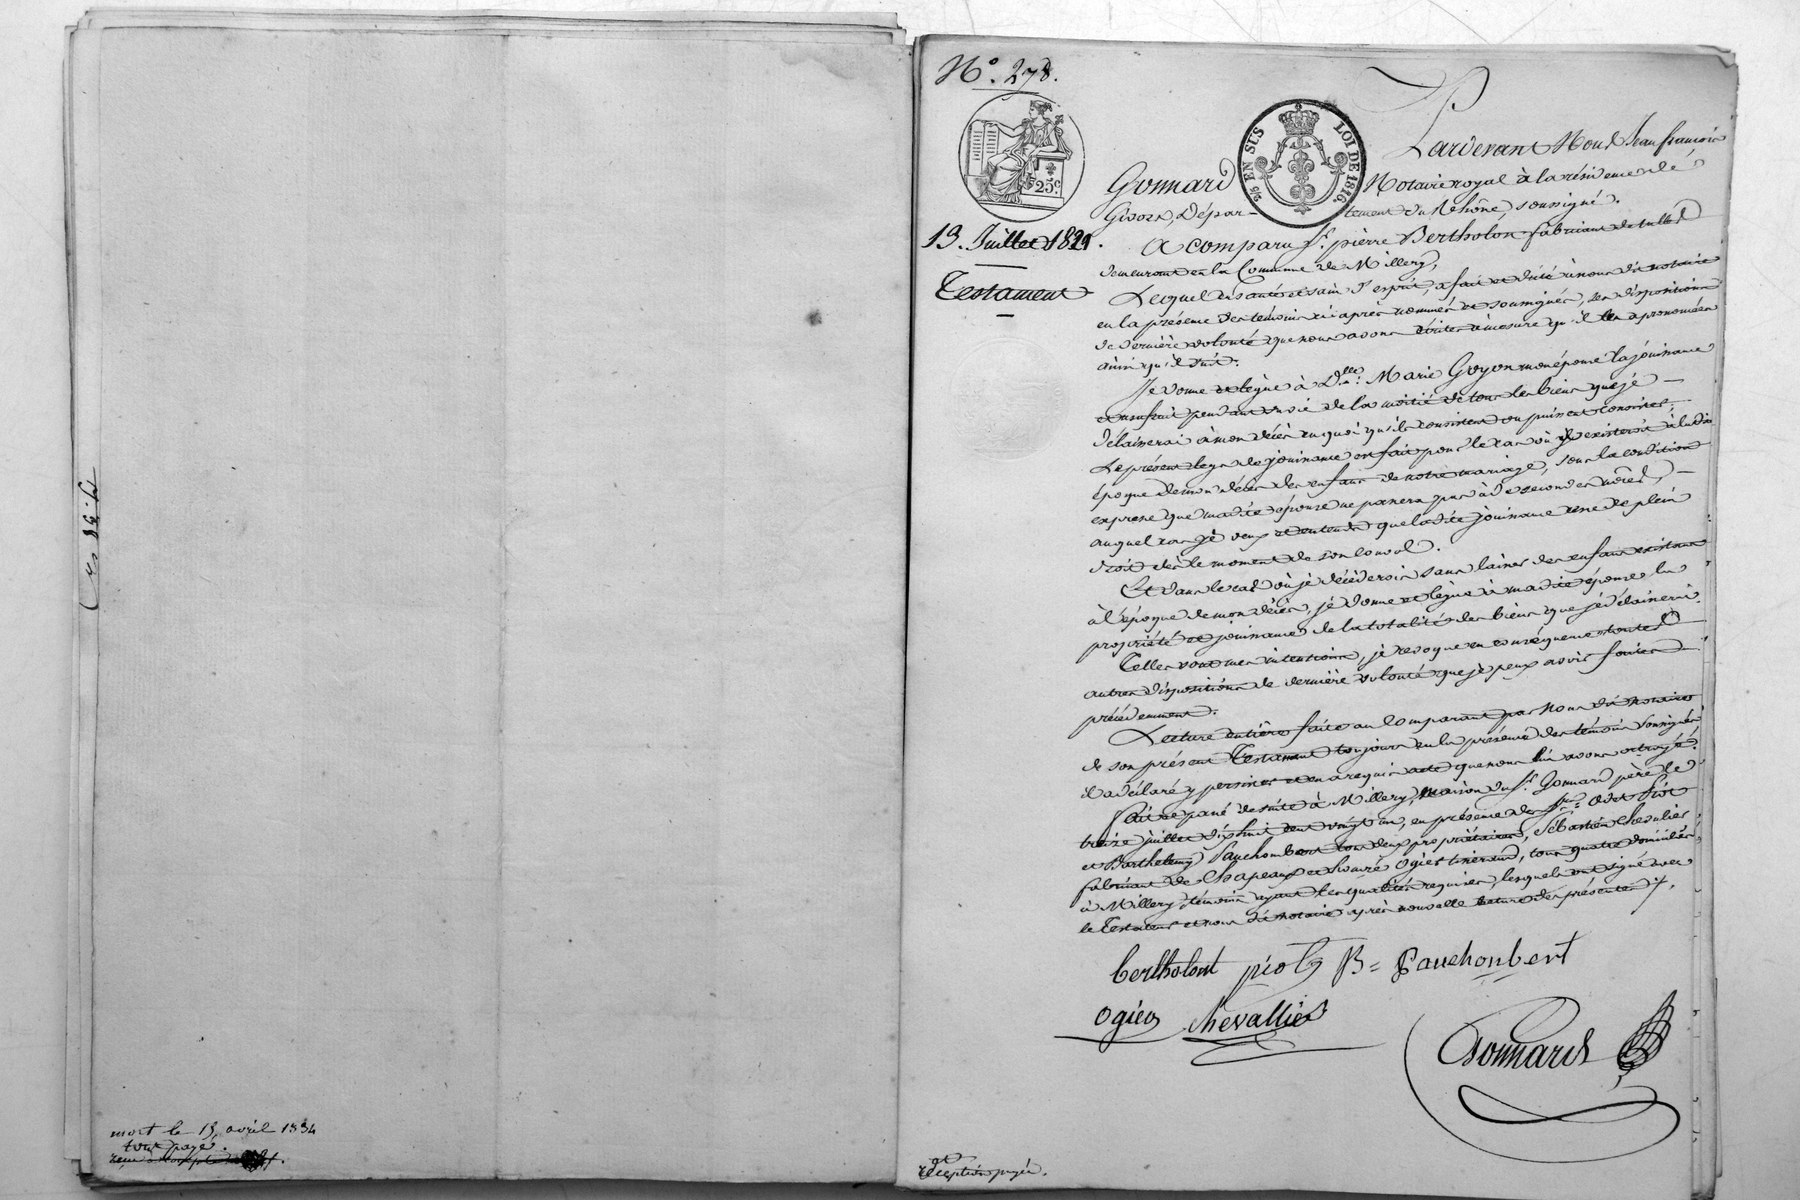 mort le 13 avril 1834
tout payé.
N.º 278.
25c.
2/5 EN SUS
LOI DE 1816.
13. Juillet 1821.
Testament
Pardevant Nous Jean françois
Gonnard Notaire royal à la résidence de
Givors, Dépar- tement du Rhône, soussigné.
A comparu Sr. pierre Bertholon fabricant de tulles
demeurant en la Commune de Millery,
Lequel de santé et sain d'esprit, a fait et dicté à nous dit notaire
en la présence des témoins ci après nommés et soussignés, ses dispositions
de dernière volonté que nous avons écrites à mesure qu'il les a prononcées
ainsi qu'il suit.
Je donne et lègue à Dlle. Marie Goyon mon épouse la jouissance
et usufruit pendant sa vie de la moitié de tous les biens que je
délaisserai à mon décès en quoi qu'ils consistent ou puissent consister,
Le présent legs de jouissance est fait pour le cas où il existeroit à la dite
époque de mon décès des enfans de notre mariage, sous la condition
expresse que madite épouse ne passera pas à de secondes nôces,
auquel cas je veux et entends que ladite jouissance cesse de plein
droit dès le moment de son convol.
Et dans le cas où je décèderois sans laisser des enfans existans
à l'époque de mon décès, je donne et lègue à madite épouse la
propriété et jouissance de la totalité des biens que je délaisserai.
Telles sont mes intentions, je revoque en conséquence toutes
autres dispositions de dernière volonté que je peux avoir faites
précédemment.
Lecture entière faite au comparant par Nous dit notaire
de son présent Testament toujours en la présence des témoins soussignés
il a déclaré y persister et en a requis acte que nous lui avons octroyé.
Fait et passé de suite à Millery, maison du Sr. Gonnard père le
treize juillet dix huit cent vingt un, en présence des Srs. Odet Piot
et Barthelemy Pauchombert tous deux propriétaires, Sébastien Chevalier
fabricant de Chapeaux et Ogier tisserand, tous quatre domiciliés
à Millery témoins ayant les qualités requises, lesquels ont signé avec
le Testateur et nous dit notaire après nouvelle lecture des présentes ./.
bertholont piot B = Pauchonbert
Ogier Chevallier
Gonnard
réception payée.